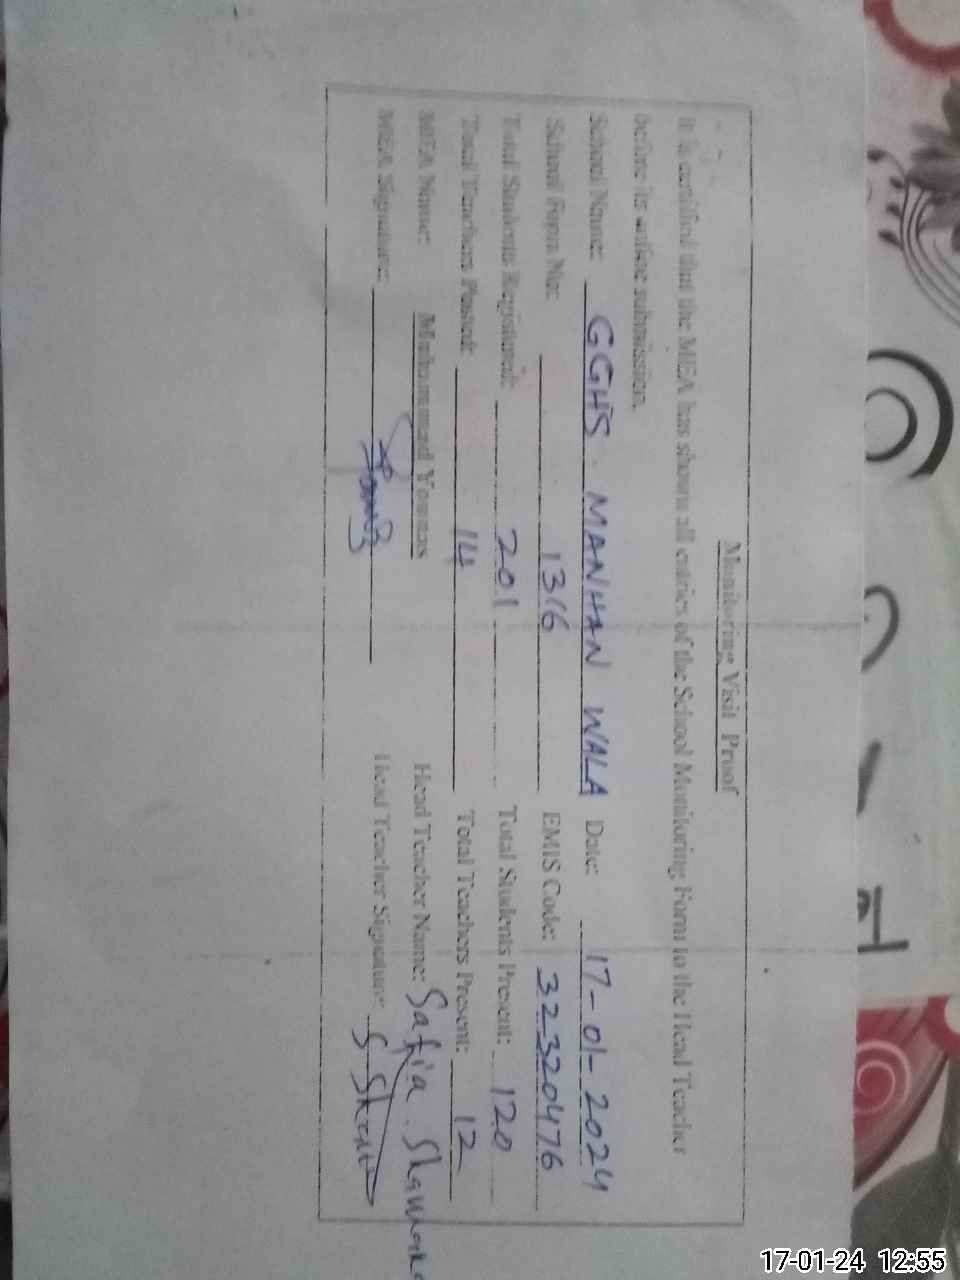 Monitoring Visit Proof
It is certified that the MEA has shown all entries of the School Monitoring Form to the Head Teacher
before its online submission.
School Name: GGHS MANHAN WALA Date: 17-01-2024
School Form No: 1316 EMIS Code: 32320476
Total Students Registered: 201 Total Students Present: 120
Total Teachers Posted: 14 Total Teachers Present: 12
MEA Name: Muhammad Younas Head Teacher Name: Safia
MEA Signature: Head Teacher Signature:
17-01-24 12:55